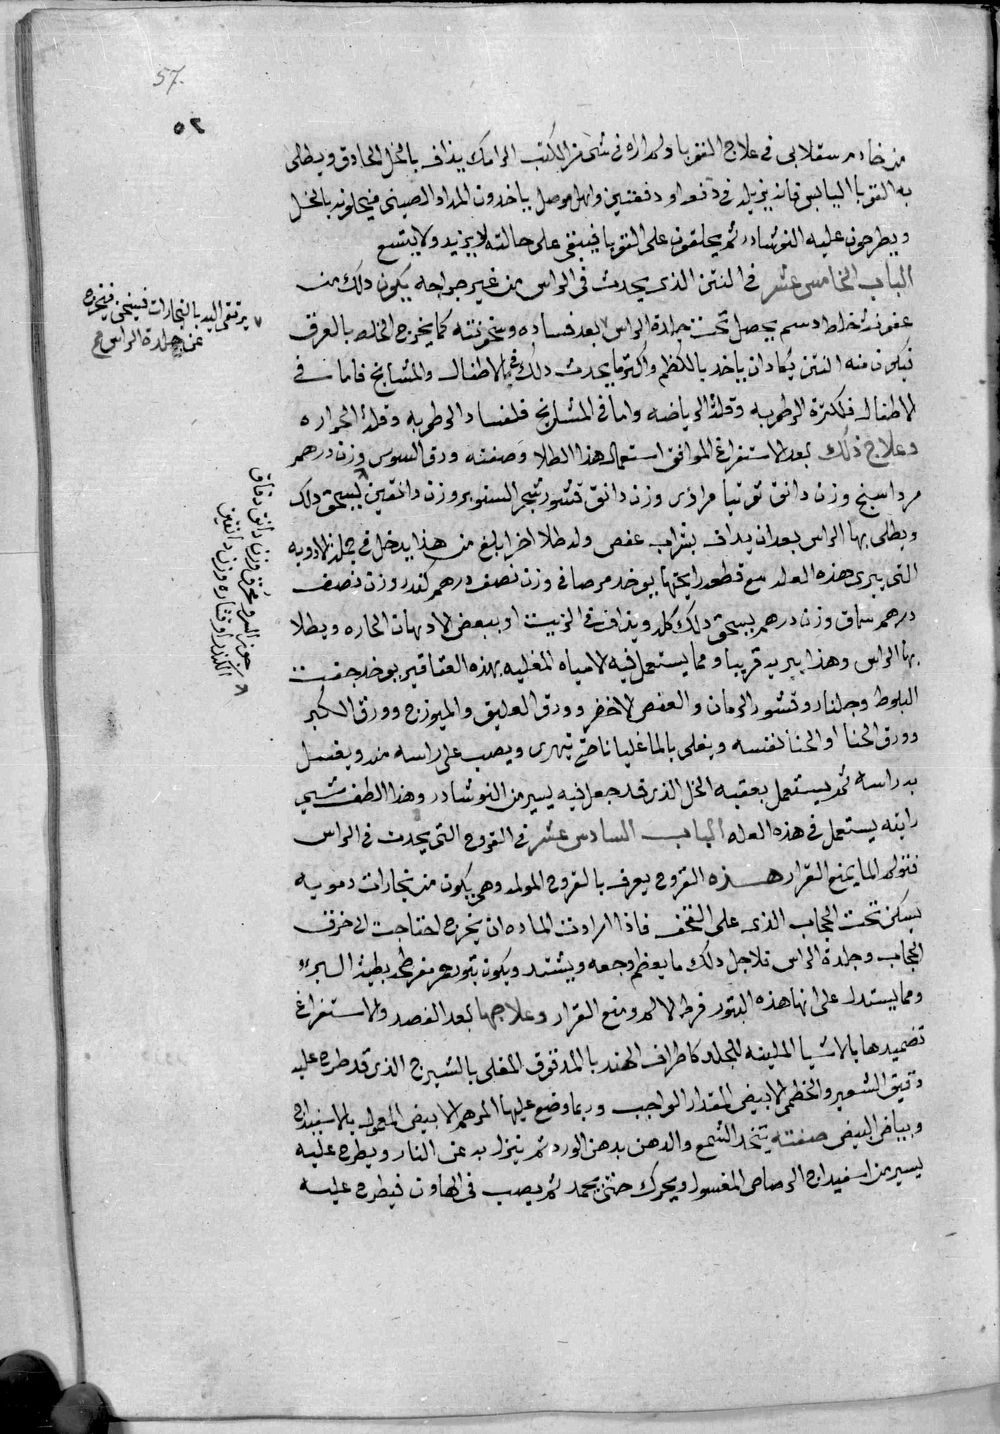 57.
٥٢
من خادم سقلابى فى علاج القوبا ولم اراه فى شى من الكتب الرامك يذاف بالخل الحاذق ويطلى
به القوبا اليابس فانه يزيله فى دفعه او دفعتين واهل موصل ياخدون المداد الصينى فيحلونه بالخل
ويطرحون عليه النوشادر ثم يحلقون على القوبا فيبقى على حالته لا يزيد ولا يتسع
الباب الخامس عشر فى النتن الذى يحدث فى الراس من غير جراحه يكون دلك من
عفونة اخلاط دسم يحصل تحت جلدة الراس بعد فساده وسخونته كما يخرج الخلط بالعرق
يرتقى اليه بالبخارات فيسخن فيخرج
عن جلدة الراس
فيكون منه النتن يكاد ان ياخد بالكظم واكثر ما يحدث دلك فى الاطفال والمشايخ فاما فى
الاطفال فلكثرة الرطوبه وقلة الرياضه واما فى المشايخ فلفساد الرطوبه وقلة الحراره
وعلاج ذلك بعد الاستفراغ الموافق استعمال هذا الطلا وصفته ورق السوس وزن درهم
مرداسنج وزن دانق توتيا مرازى وزن دانق قشور شجر الصنوبر وزن دانقين يسحق دلك
جوز السرو محرق وزن دانق دقاق
الكندر او قشاره وزن دانقين
ويطلى بها الراس بعد ان يداف بشراب عفص وله طلا اخر ابلغ من هذا يدخل فى جملة الادويه
التى يبرى هذه العله مع قطعه رايحتها يوخد مر صافى وزن نصف درهم كندر وزن نصف
درهم سماق وزن درهم يسحق دلك كله ويذاف فى الزيت او ببعض الادهان الحاره ويطلا
بها الراس وهذا يبريه قريبا ومما يستعمل فيه الامياه المغليه بهذه العقاقير يوخد جفت
البلوط وجلنار وقشور الرمان والعفص الاخضر وورق العليق والميوزج وورق الكبر
وورق الحنا او الحنا نفسه ويغلى بالما غليانا حتى تهرى ويصب على راسه منه ويغسل
به راسه ثم يستعمل بعقبه الخل الذى قد جعل فيه يسير من النوشادر وهذا الطف شى
رايته يستعمل فى هذه العله الباب السادس عشر فى القروح التى يحدث فى الراس
فتولم الما يمنع القرار هذه القروح يعرف بالقروح المولمه وهى يكون من بخارات دمويه
يسكن تحت الحجاب الذى على القحف فاذا ارادت الماده ان يخرج احتاجت الى خرق
الحجاب وجلدة الراس فلاجل دلك ما يعظم وجعه ويشتد ويكون بثور حمر مفرطحه بطية البرء
ومما يستدل على انها هذه البثور فرط الالم ومنع القرار وعلاجها بعد الفصد والاستفراغ
تضميدها بالاشيا المليينه للجلد كاطراف الهندبا المدقوق المغلى بالشيرج الذى قد طرح عليه
دقيق الشعير والخطمى الابيض المقدار الواجب وربما وضع عليها المرهم الابيض المعمول بالاسفيداج
وبياض البيض صفته يتخد الشمع والدهن بدهن الورد ثم ينزل به عن النار ويطرح عليه
يسير من اسفيداج الرصاص المغسول ويحرك حتى يجمد ثم يصب فى الهاون فيطرح عليه